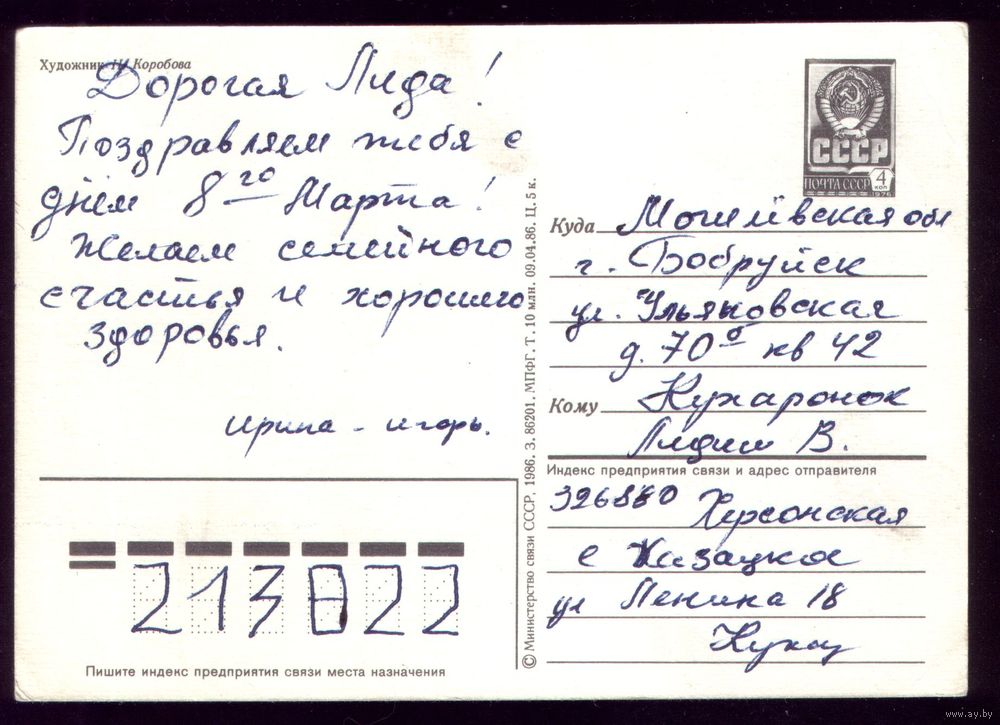 Художник Н. Коробова
Дорогая Лида!
Поздравляем тебя с
днём 8го Марта!
Желаем семейного
счастья и хорошего
здоровья.
Ирина - Игорь.
213822
Пишите индекс предприятия связи места назначения
© Министерство связи СССР, 1986. З. 86201. МПФГ. Т. 10 млн. 09.04.86. Ц. 5 к.
СССР
ПОЧТА СССР 4 коп
1976
Куда Могилёвская обл
г. Бобруйск
ул. Ульяновская
д. 70б кв 42
Кому Кухаронок
Лидии В.
Индекс предприятия связи и адрес отправителя
Херсонская
с Казацкое
ул Ленина 18
www.ay.by